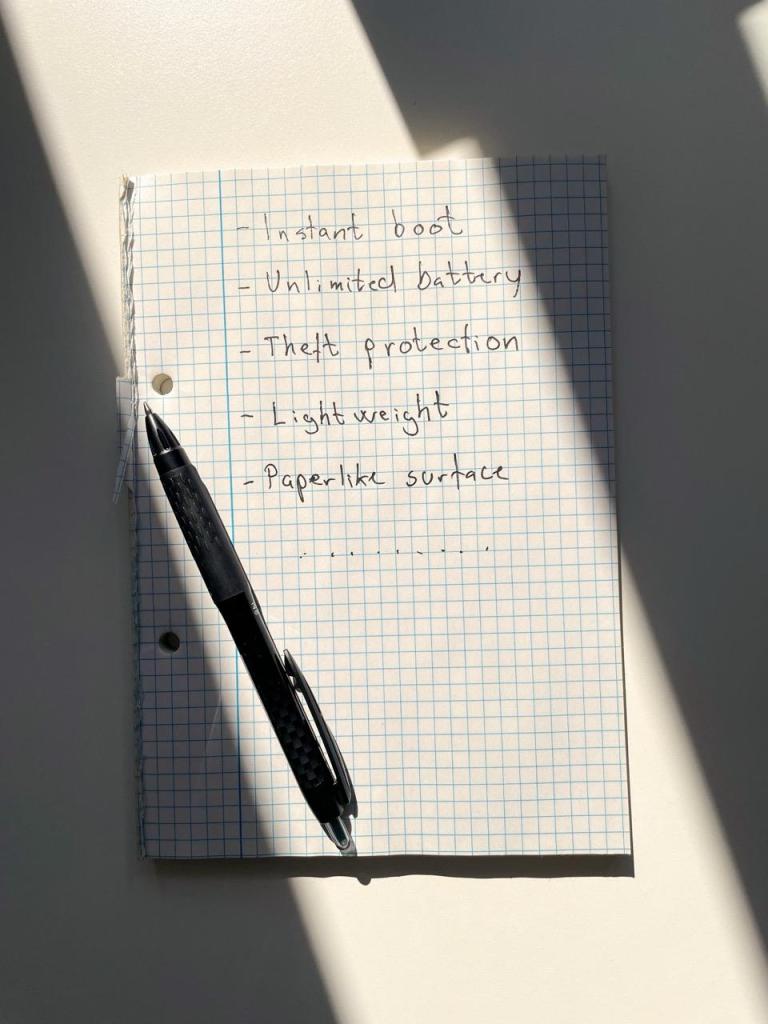 - Instant boot
- Unlimited battery
- Theft protection
- Lightweight
- Paperlike surface
. . . . . . . .